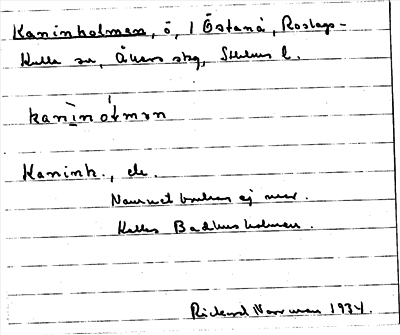 Kaninholmen, ö, i Östanå, Roslags-
Kulla sn, Åkers skg, Sthlms l.
kanìnóɫmɘn
Kaninh., ek.
Namnet brukas ej mer.
Kallas Badhusholmen.
Rickard Norrman 1934.